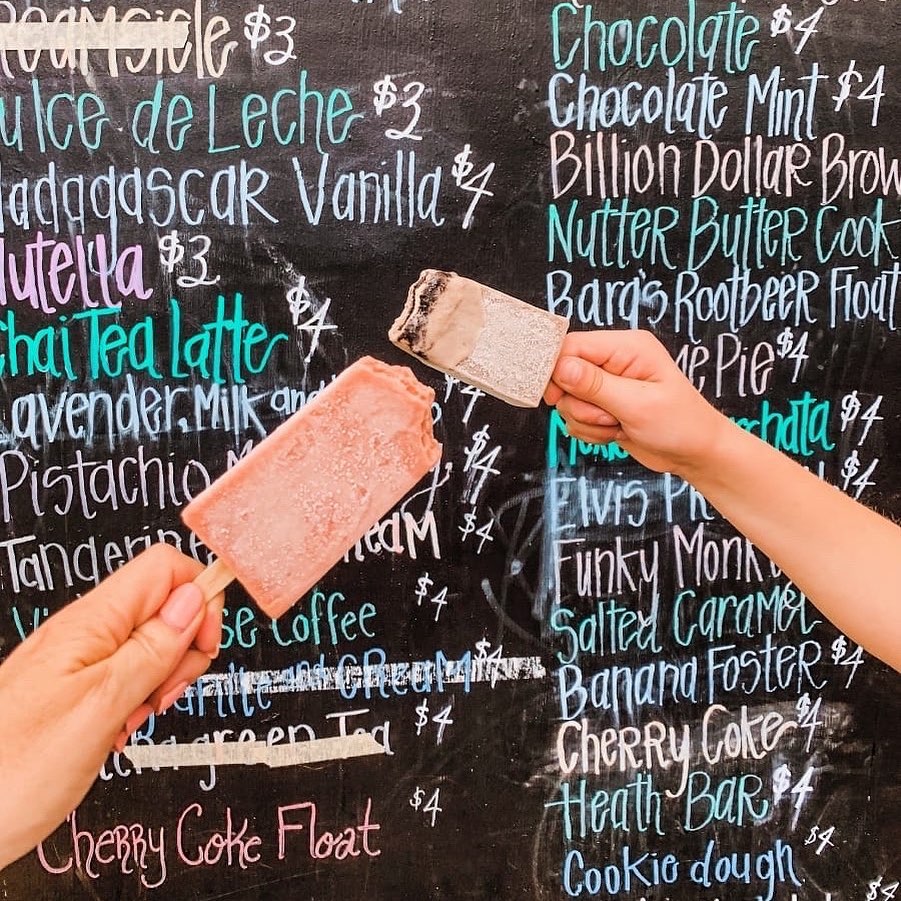 reamsicle $3
ulce de Leche $3
adagascar Vanilla $4
utella $3
hai Tea Latte $4
avender, Milk and
Pistachio $4
Tangerine eaM $4
se Coffee $4
and CReaM $4
green Tea $4
Cherry Coke Float $4
Chocolate $4
Chocolate Mint $4
Billion Dollar Brow
Nutter Butter Cook
Barq's Rootbeer Float
e Pie $4
chata $4
Elvis $4
Funky Monk
Salted Caramel
Banana Foster $4
Cherry Coke $4
Heath Bar $4
Cookie dough $4
$4